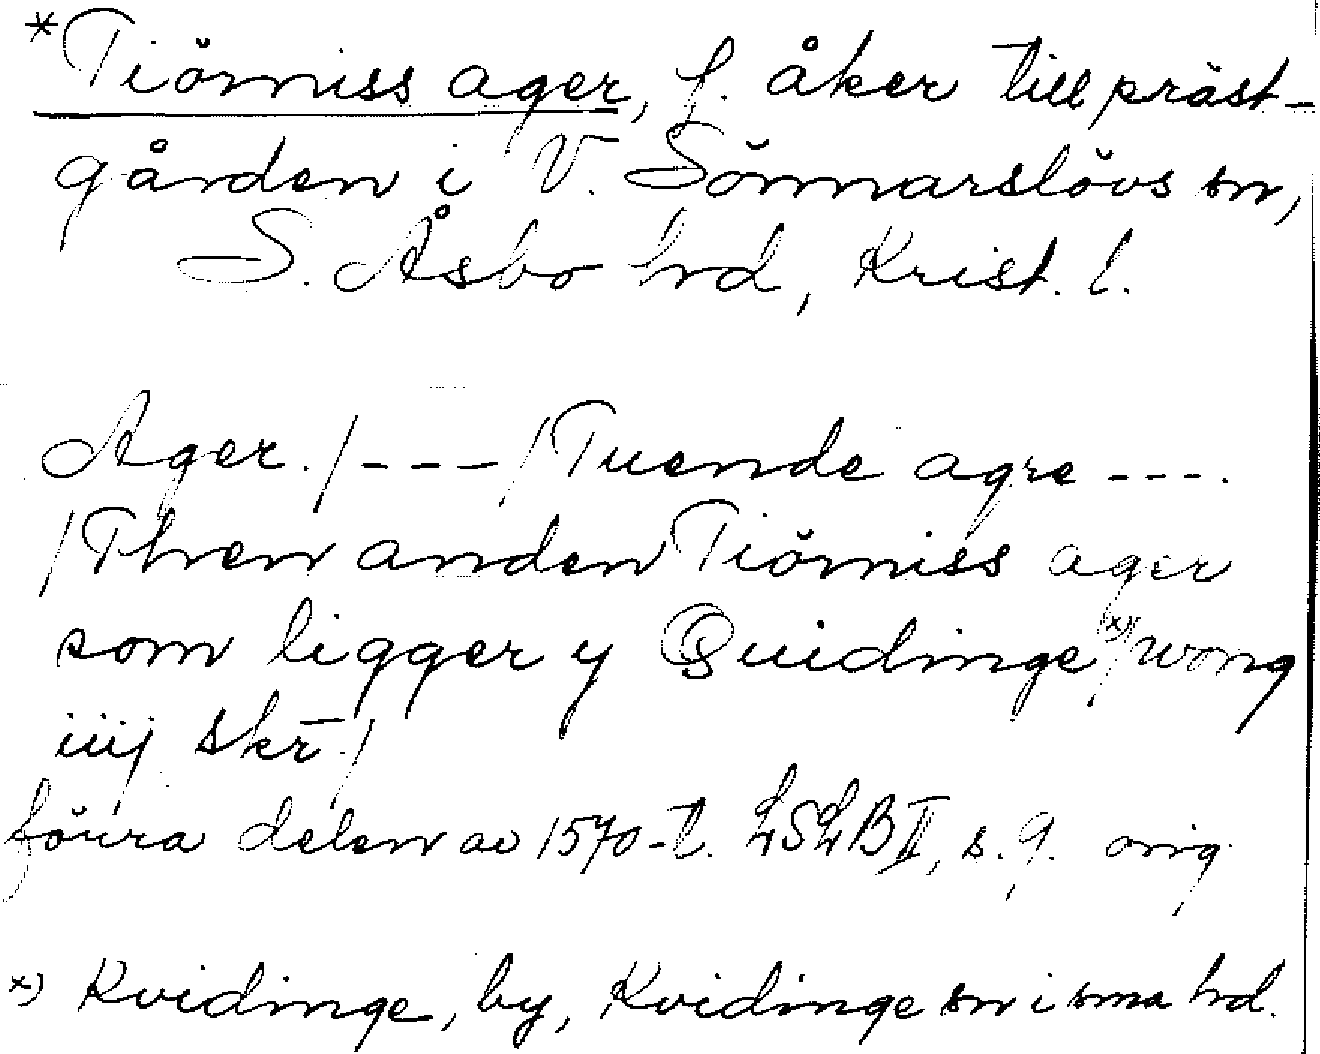 *Tiörniss ager, f. åker till präst-
gården i V. Sönnarslövs sn,
S. Åsbo hd, Krist. l.
Ager./---/Tuende agre ---.
/Then anden Tiörniss ager
som ligger y Quidinge x)/wong
iiij skr̄./
förra delen av 1570-t. LSLB II, s. 9. orig
x) Kvidinge, by, Kvidinge sn i sma hd.